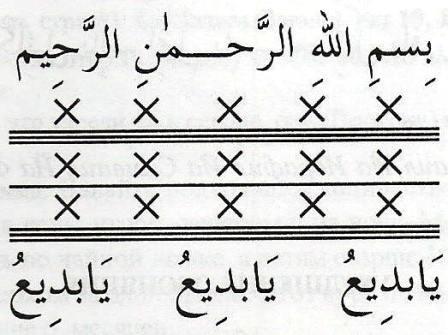 بِسْمِ اللهِ الرَّحـمنِ الرَّحِيمِ
× × × × ×
× × × × ×
× × × × ×
يابَدِيعُ يابَدِيعُ يابَدِيعُ